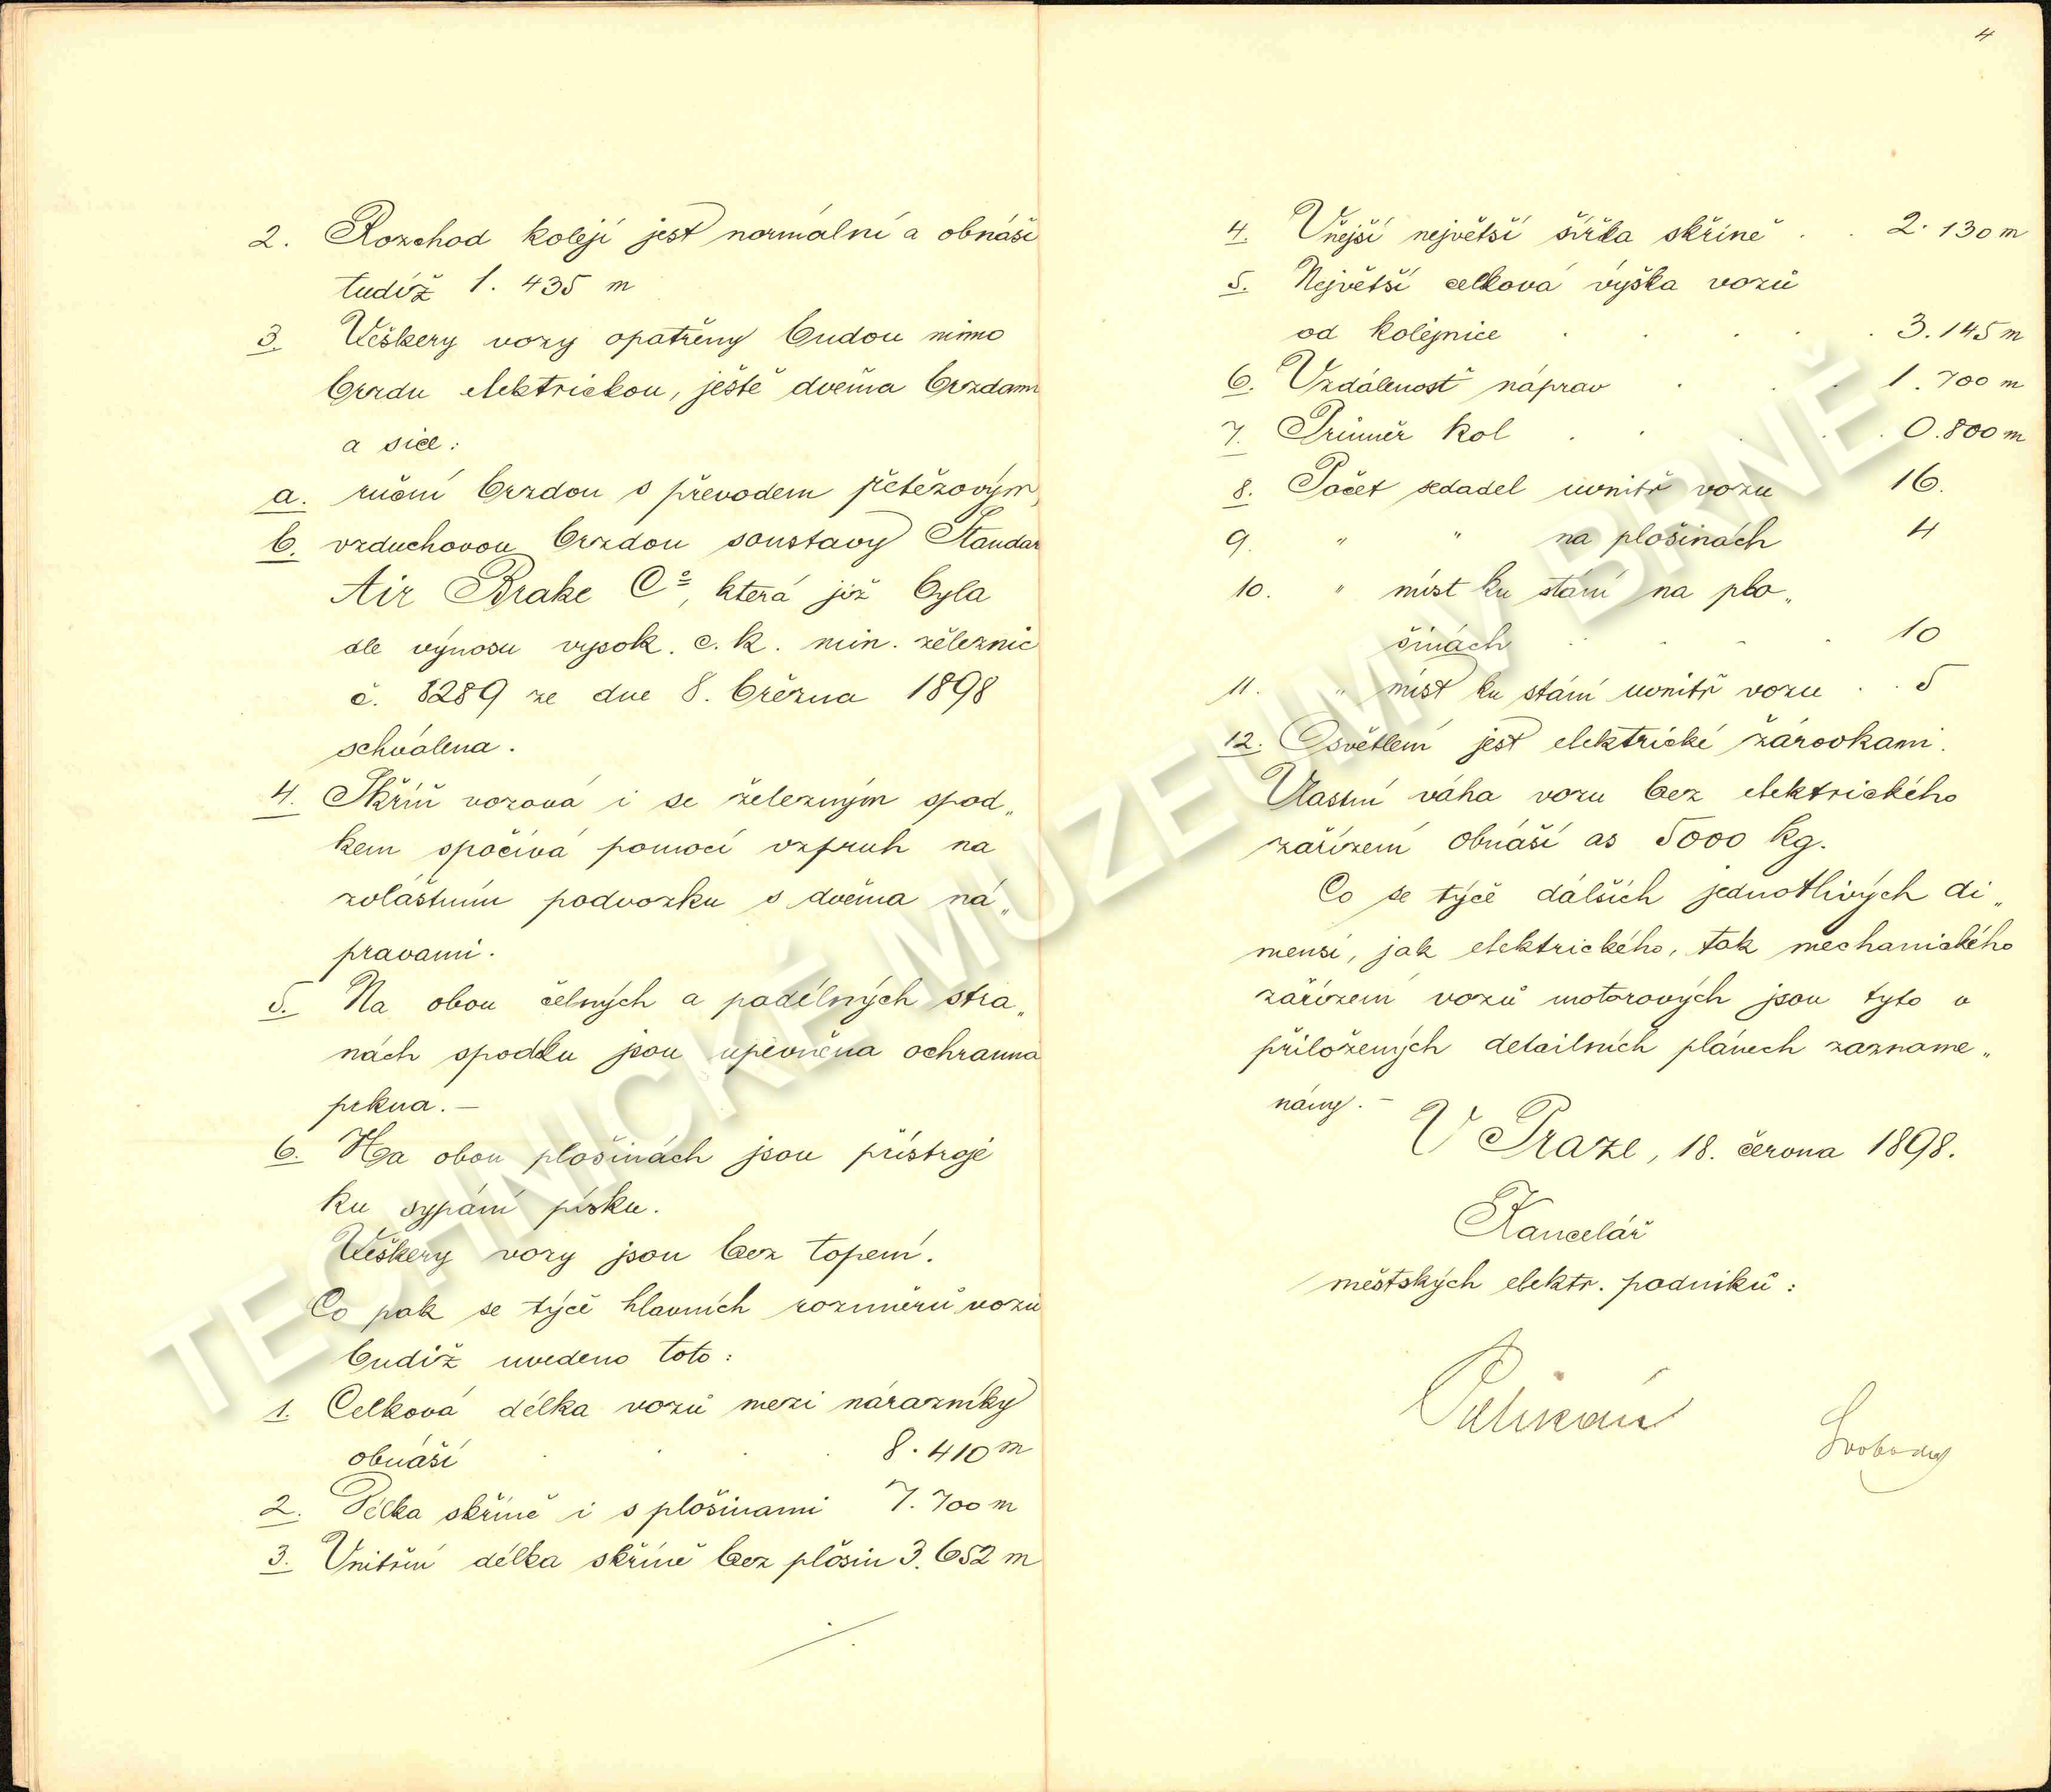 2. Rozchod kolejí jest normální a obnáší
tudíž 1. 435 m
3. Veškery vozy opatřeny budou mimo
brzdu elektrickou, ještě dvěma brzdam
a sice:
a. ruční brzdou s převodem řetězovým,
b. vzduchovou brzdou soustavy Standar
Air Brake Co, která již byla
dle výnosu vysok. c. k. min. železnic
č. 8289 ze dne 8. března 1898
schválena.
4. Skříň vozová i se železným spod„
kem spočívá pomocí vzpruh na
zvláštním podvozku s dvěma ná„
pravami.
5. Na obou čelných a podélných stra„
nách spodku jsou upevněna ochranná
prkna. —
6. Na obou plošinách jsou přístroje
ku sypání písku.
Veškery vozy jsou bez topení.
Co pak se týče hlavních rozměrů vozů
budiž uvedeno toto:
1. Celková délka vozů mezi nárazníky
obnáší . . . . 8. 410 m
2. Délka skříně i s plošinami 7. 700 m
3. Vnitřní délka skříně bez plošin 3. 652 m
./.
4
4. Vnější největší šířka skříně . . 2. 130 m
5. Největší celková výška vozů
od kolejnice . . . . . 3. 145 m
6. Vzdálenost náprav . . . 1. 700 m
7. Průměr kol . . . . . 0. 800 m
8. Počet sedadel uvnitř vozu 16.
9. " " na plošinách 4
10. " míst ku stání na plo„
šinách . . . . 10
11. " míst ku stání uvnitř vozu . . 5
12. Osvětlení jest elektrické žárovkami.
Vlastní váha vozu bez elektrického
zařízení obnáší as 5000 kg.
Co se týče dalších jednotlivých di„
mensí, jak elektrického, tak mechanického
zařízení vozů motorových jsou tyto v
přiložených detailních plánech zazname„
nány. —
V Praze, 18. června 1898.
Kancelář
městských elektr. podniků:
Pelikán
Svoboda
TECHNICKÉ MUZEUM V BRNĚ